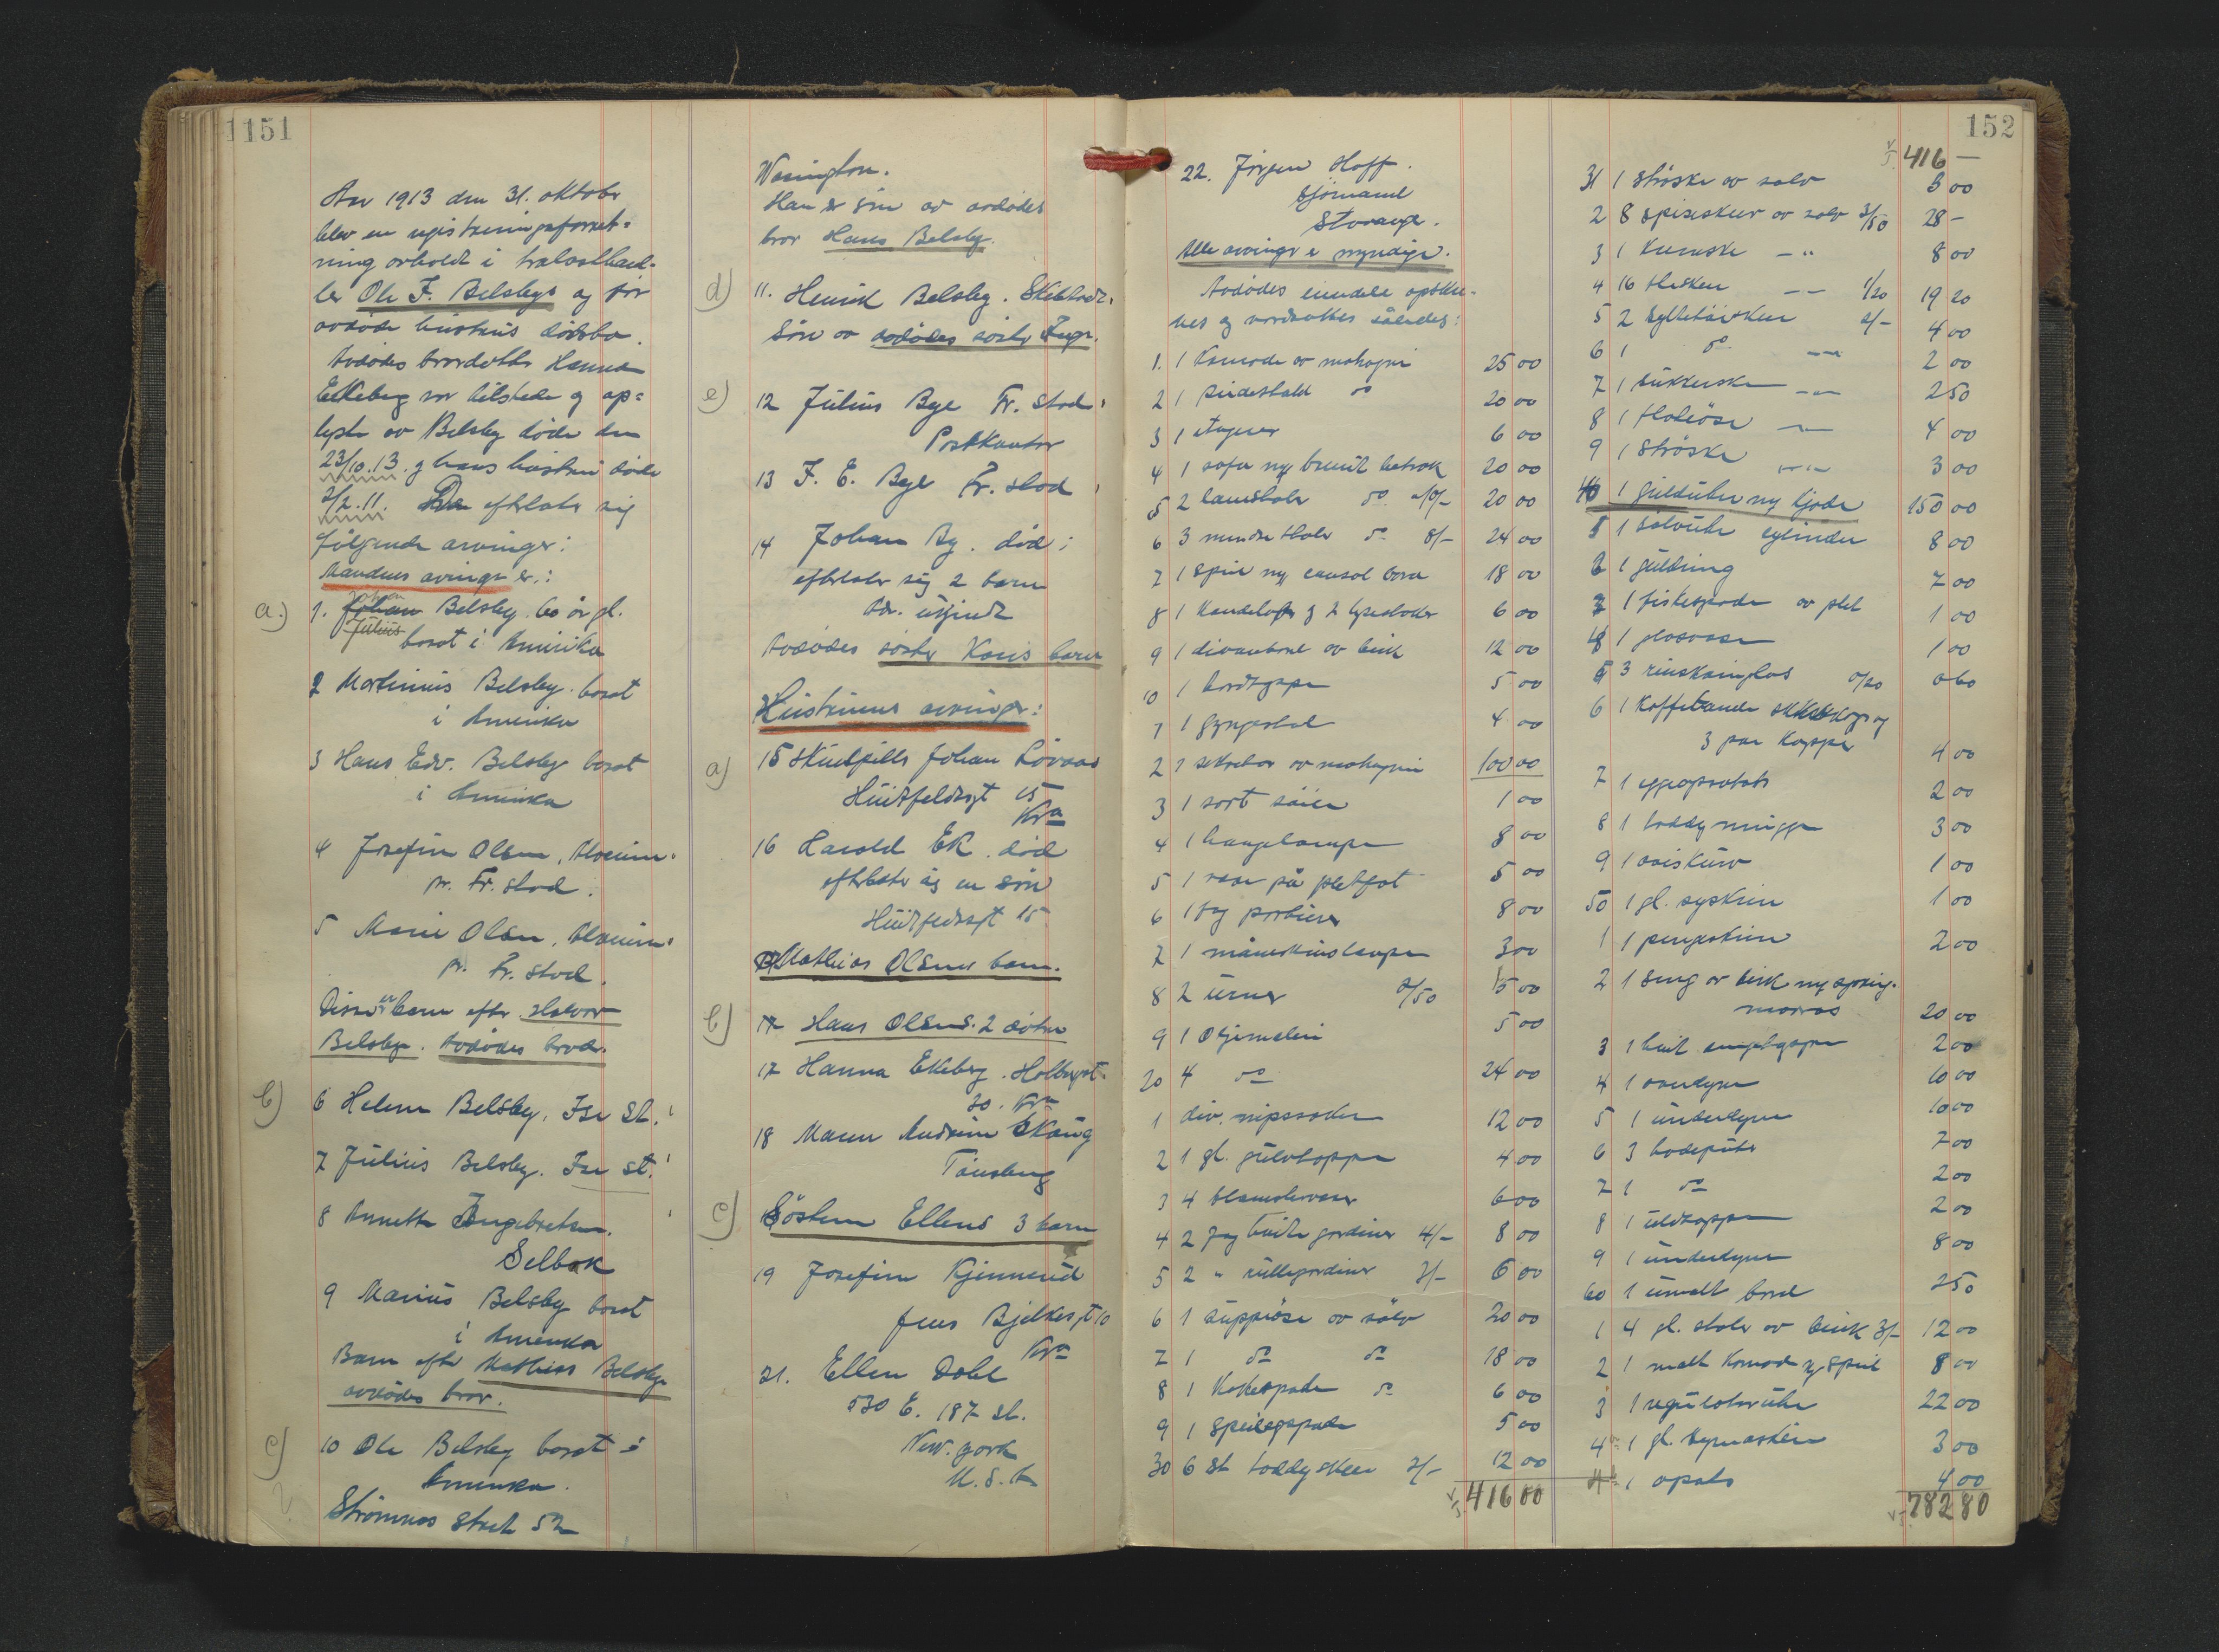 1151
Aar 1913 den 31. oktober
blev en registreringsforret-
ning avholdt i trælasthand-
ler Ole F. Belsbys og før
avdøde hustrus dødsbo.
Avdødes brordatter Hanna
Ekeberg var tilstede og op-
lyste av Belsby døde den
23/10.13. og hans hustru døde
2/2.11. De efterlater sig
følgende arvinger:
Mandens arvinger er:
a.) 1. Johan Belsby 60 år gl.
Julius bosat i Amerika
2 Martinius Belsby bosat
i Amerika
3 Hans Edv. Belsby bosat
i Amerika
4 Josefine Olsen,
pr. Fr.stad.
5 Marie Olsen,
pr. Fr.stad.
Disse er barn efter Halvor
Belsby. Avdødes bror.
b) 6 Helene Belsby, Fr. St.
7 Julius Belsby. Fr. St.
8 Annette Engebretsen.
Selbak
9 Marius Belsby bosat
i Amerika
Barn efter Mathias Belsby
avdødes bror.
c) 10 Ole Belsby bosat i
Amerika.
Strømnes Street 52
Wasington.
Han er søn av avdødes
bror Hans Belsby.
d) 11. Henrik Belsby.
Søn av avdødes søster
e) 12 Julius Bye Fr. stad
Postkontor
13 F. E. Bye Fr. stad
14 Johan By. død;
efterlater sig 2 barn
Adr. ukjendt
Avdødes søster Karis barn
Hustruens arvinger:
a) 15 Skuespiller Johan Løvaas
Huitfeldtsgt 15
Kra
16 Harald Ek. død
efterlater sig en søn
Huitfeldtsgt 15
Mathias Olsens barn.
b) Hans Olsens 2 døtre
17 Hanna Ekeberg. Holbergst.
30. Kra
18 Maren Andrine Skaug
Tønsberg
c) Søsteren Ellens 3 barn
19 Josefine Kjennerud
Jens Bjelkesgt 10
Kra
21. Ellen Dahl
530 E. 187 St.
New. york
U. S. A
152
22. Jørgen Hoff.
Sjømand
Stavanger.
Alle arvinger er myndige.
Avdødes eiendele opskre-
ves og værdsættes således:
1. 1 Komode av mahogni 25 00
2 1 do 20 00
3 1 etagere 6 00
4 1 sofa m/ brunt betræk 20 00
5 2 lænstoler do a/10/- 20 00
6 3 mindre stoler do 8/- 24 00
7 1 speil m/ consol bord 18 00
8 1 og 2 lysestaker 6 00
9 1 divanbord av birk 12 00
10 1 bordteppe 5 00
1 1 gyngestol 4 00
2 1 sekretær av mahogni 100 00
3 1 sort søile 1 00
4 1 hængelampe 8 00
5 1 vase på pletfot 5 00
6 1 fag portierer 8 00
7 1 måneskinslampe 3 00
8 2 urner a/50 15 00
9 1 Oljemaleri 5 00
20 4 do 24 00
1 div. nipssaker 12 00
2 1 gl. gulvteppe 4 00
3 4 blomstervaser 6 00
4 2 fag hvite gardiner 4/- 8 00
5 2 " rullegardiner 3/- 6 00
6 1 suppeøse av sølv 20 00
7 1 do do 18 00
8 1 Kakespade do 6 00
9 1 speilegspade 5 00
30 6 st toddyskeer 2/- 12 00
416 00
416 —
31 1 Strøske av sølv 3 00
2 8 spiseskeer av sølv 3/50 28 -
3 1 - " 8 00
4 16 theskeer — 1/20 19 20
5 2 Syltetøiskeer 2/- 4 00
6 1 do — 2 00
7 1 sukkerske — 2 50
8 1 fløteøse — 4 00
9 1 Strøske — 3 00
40 1 guldur m/ kjede 150 00
1 1 sølvur cylinder 8 00
2 1 guldring 7 00
3 1 fiskespade av plet 1 00
4 1 glasvase 1 00
5 3 rinskvinglas a/20 0 60
6 1 Kaffekande
3 par Kopper 4 00
7 1 eggeopsats 2 00
8 1 toddymugge 3 00
9 1 aviskurv 1 00
50 1 gl. syskrin 1 00
1 1 pengeskrin 2 00
2 1 seng av birk m/ spring-
madras 20 00
3 1 hvit sengeteppe 2 00
4 1 overdyne 10 00
5 1 underdyne 10 00
6 3 hodeputer 7 00
7 1 do 2 00
8 1 uldteppe 2 00
9 1 underdyne 8 00
60 1 umalt bord 2 50
1 4 gl. stoler av birk 3/- 12 00
2 1 malt komode m/ speil 8 00
3 1 regulatorur 22 00
4 1 gl. symaskin 3 00
1 opsats 4 00
782 80